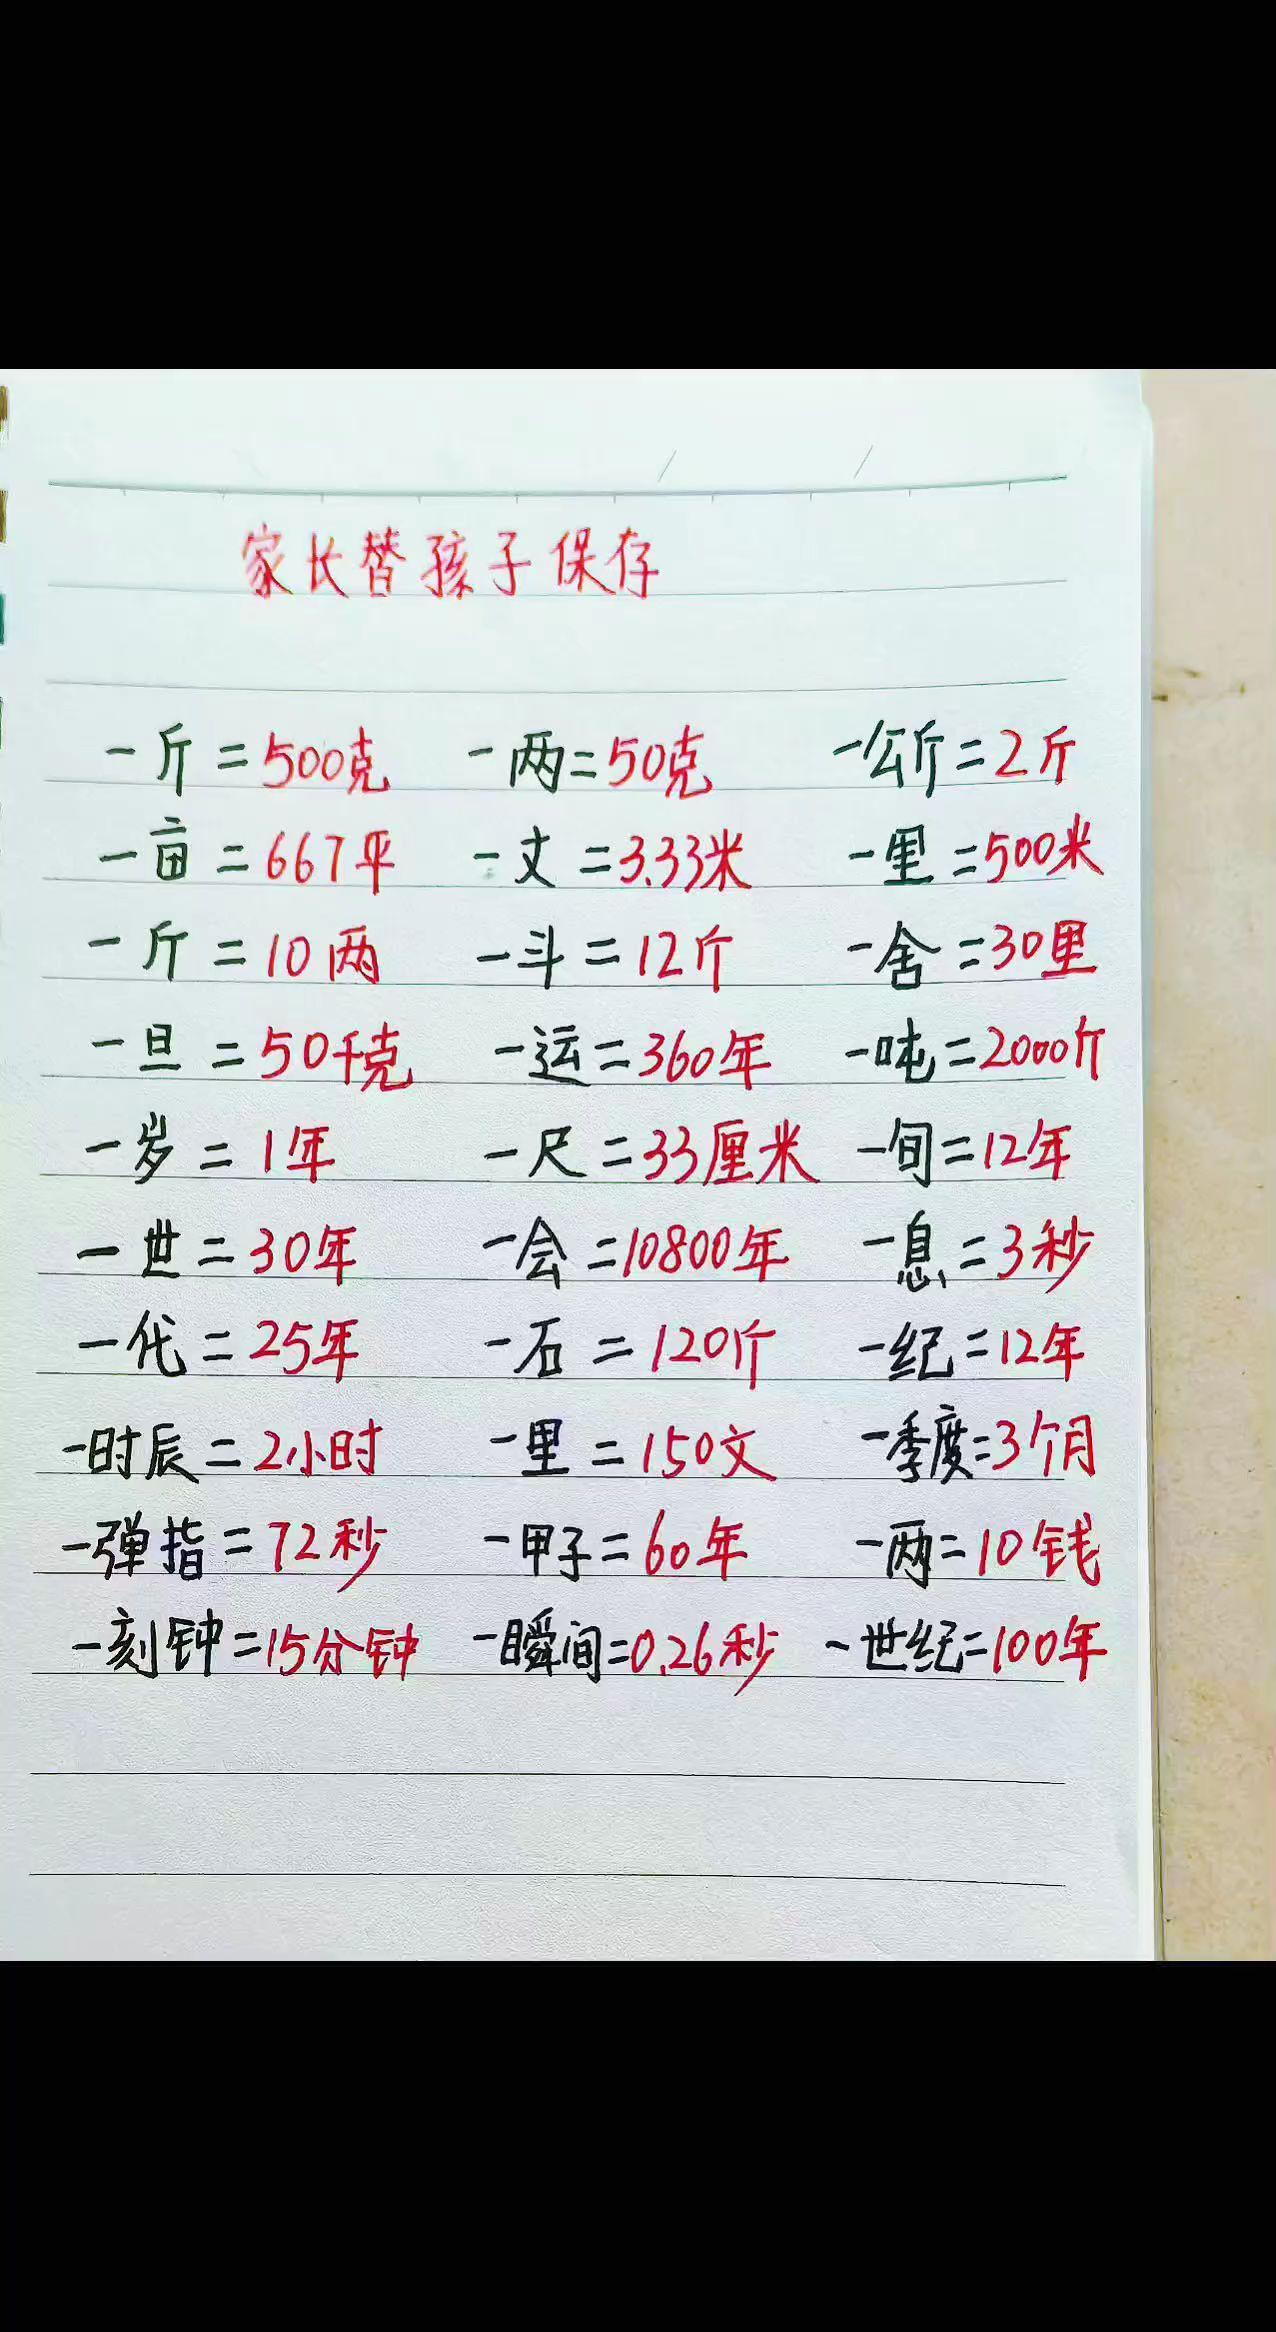 家长替孩子保存
一斤=500克 一两=50克 一公斤=2斤
一亩=667平 一丈=3.33米 一里=500米
一斤=10两 一斗=12斤 一舍=30里
一旦=50千克 一运=360年 一吨=2000斤
一岁=1年 一尺=33厘米 一旬=12年
一世=30年 一会=10800年 一息=3秒
一代=25年 一石=120斤 一纪=12年
一时辰=2小时 一里=150文 一季度=3个月
一弹指=72秒 一甲子=60年 一两=10钱
一刻钟=15分钟 一瞬间=0.26秒 一世纪=100年